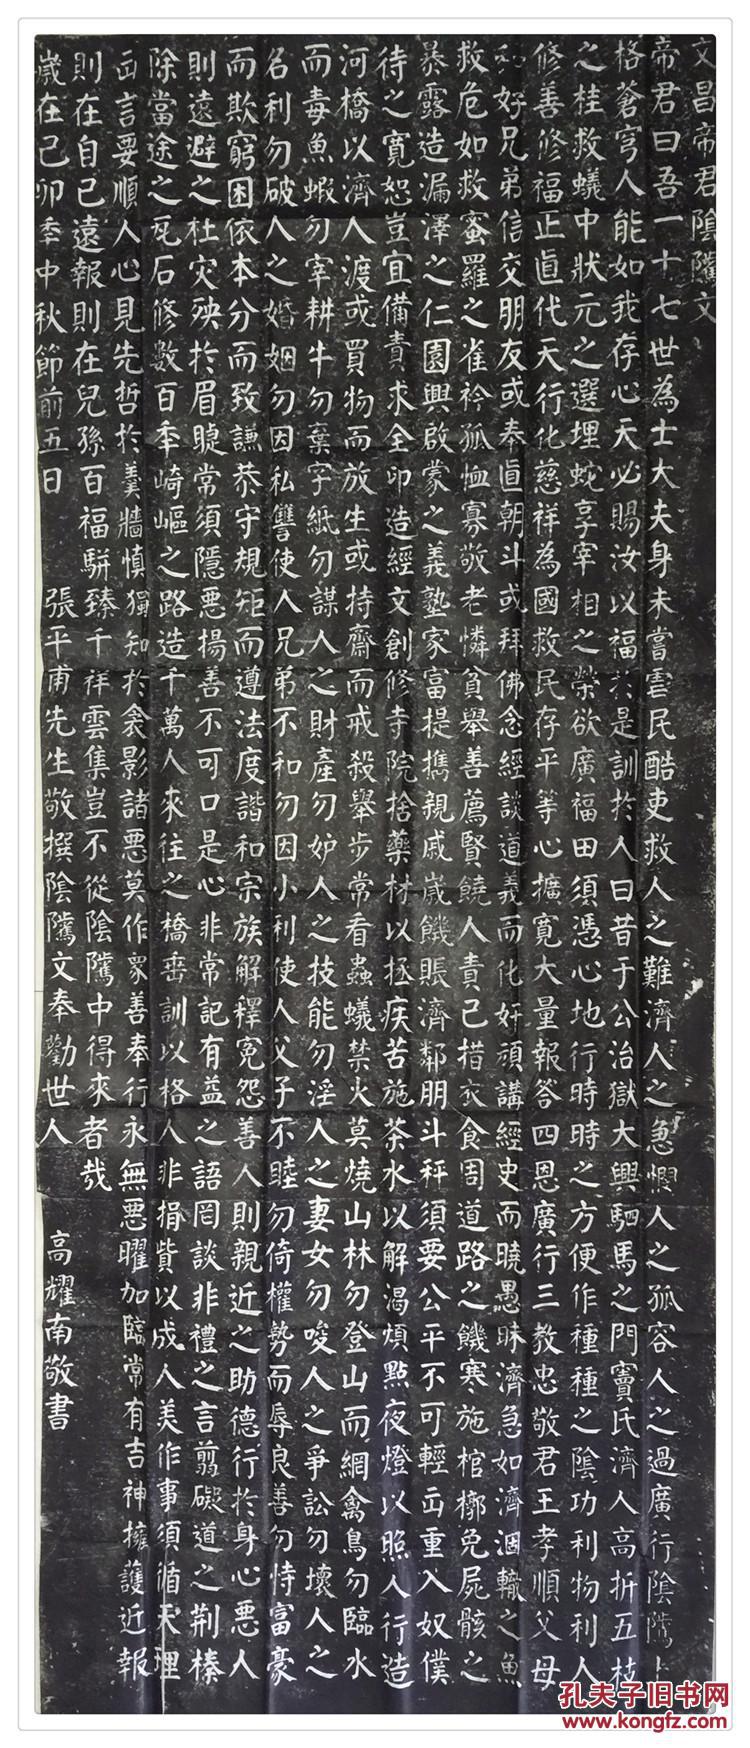 文昌帝君陰騭文
帝君曰吾一十七世為士大夫身未嘗虐民酷吏救人之難濟人之急憫人之孤容人之過廣行陰騭上
格蒼穹人能如我存心天必賜汝以福於是訓於人曰昔于公治獄大興駟馬之門竇氏濟人高折五枝
之桂救蟻中狀元之選埋蛇享宰相之榮欲廣福田須憑心地行時時之方便作種種之陰功利物利人
修善修福正直代天行化慈祥為國救民存平等心擴寬大量報答四恩廣行三教忠敬君王孝順父母
和好兄弟信交朋友或奉直朝斗或拜佛念經談道義而化奸頑講經史而曉愚昧濟急如濟涸轍之魚
救危如救蜜羅之雀衿孤恤寡敬老憐貧舉善薦賢饒人責己措衣食周道路之饑寒施棺槨免屍骸之
暴露造漏澤之仁園興啟蒙之義塾家富提攜親戚歲饑賑濟鄰朋斗秤須要公平不可輕出重入奴僕
待之寬恕豈宜備責求全印造經文創修寺院捨藥材以拯疾苦施茶水以解渴煩點夜燈以照人行造
河橋以濟人渡或買物而放生或持齋而戒殺舉步常看蟲蟻禁火莫燒山林勿登山而網禽鳥勿臨水
而毒魚蝦勿宰耕牛勿棄字紙勿謀人之財產勿妒人之技能勿淫人之妻女勿唆人之爭訟勿壞人之
名利勿破人之婚姻勿因私讐使人兄弟不和勿因小利使人父子不睦勿倚權勢而辱良善勿恃富豪
而欺窮困依本分而致謙恭守規矩而遵法度諧和宗族解釋冤怨善人則親近之助德行於身心惡人
則遠避之杜灾殃於眉睫常須隱惡揚善不可口是心非常記有益之語罔談非禮之言翦礙道之荆榛
除當途之瓦石修數百年崎嶇之路造千萬人來往之橋垂訓以格人非捐貲以成人美作事須循天理
出言要順人心見先哲於羹牆慎獨知於衾影諸惡莫作眾善奉行永無惡曜加臨常有吉神擁護近報
則在自己遠報則在兒孫百福駢臻千祥雲集豈不從陰騭中得來者哉
歲在己卯年中秋節前五日 張平甫先生敬撰陰騭文奉勸世人 高耀南敬書
孔夫子旧书网
kongfz.com